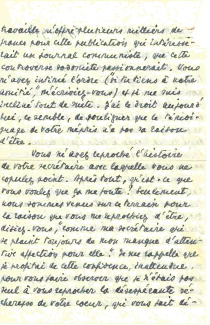 travailler, m'offre plusieurs milliers de
francs pour cette publication qui intéresse-
rait un journal communiste, que cette
controverse passionnerait. Vous
m'avez intimé l'ordre (si tu tiens à notre
amitié, m'écriviez-vous) et je me suis
incliné tout de suite. J'ai le droit aujourd'
hui, ce semble, de souligner que le témoi-
gnage de votre mépris n'a pas sa raison
d'être.
Vous m'avez reproché l'histoire
de votre secrétaire avec laquelle vous ne
couchez point. Après tout, qu'est-ce que
vous voulez que ça me foute ! Seulement,
nous sommes venus sur ce terrain pour
la raison que vous me reprochiez d'être,
disiez-vous, comme ma secrétaire qui
se plaint toujours de mon manque d'atten-
tive affection pour elle. Je me rappelle que
je profitai de cette confidence, inattendue
pour vous faire observer que je n'étais pas
seul à vous reprocher la désespérante sé-
cheresse de votre cœur, que vous fait dé-